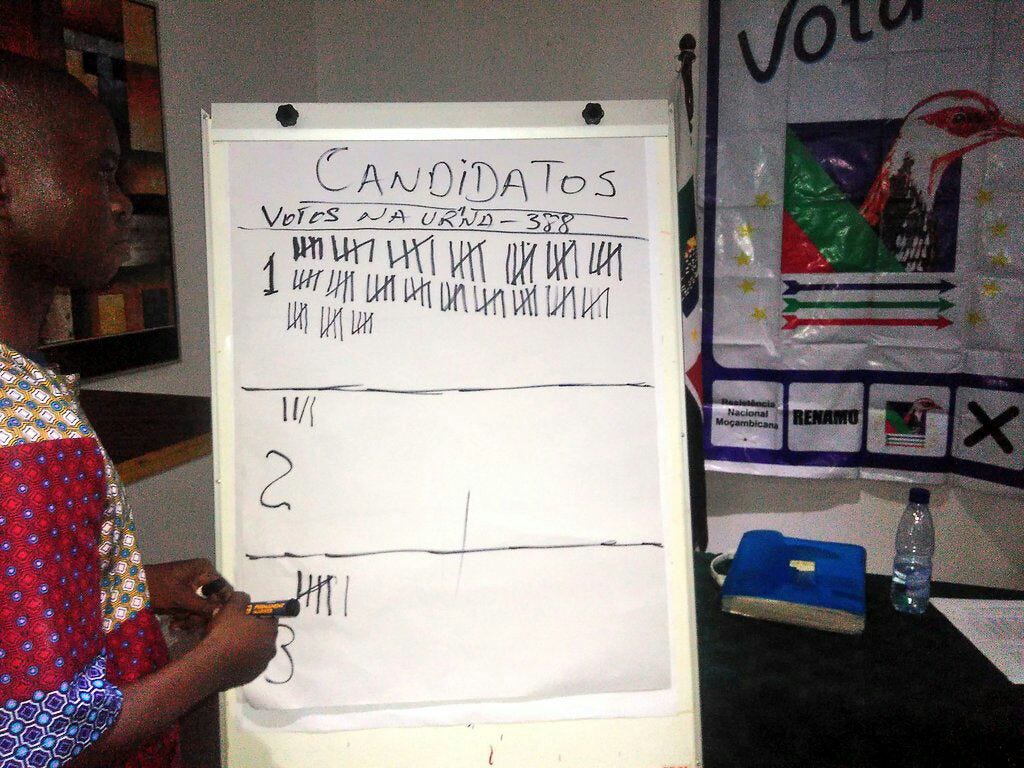 CANDIDATOS
VOTOS NA URNA - 388
1
2
3
Votu
Resistência
Nacional
Moçambicana
RENAMO
PERMANENT
MARKER